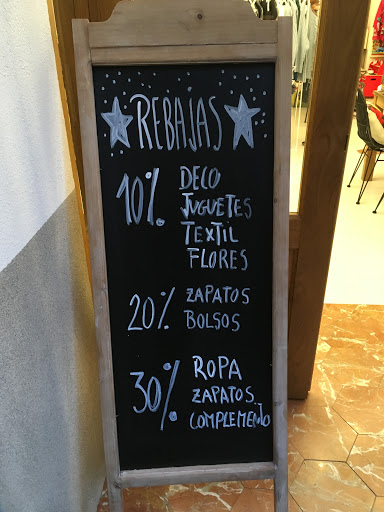 REBAJAS
10% DECO
JUGUETES
TEXTIL
FLORES
20% ZAPATOS
BOLSOS
30% ROPA
ZAPATOS.
COMPLEMENTO